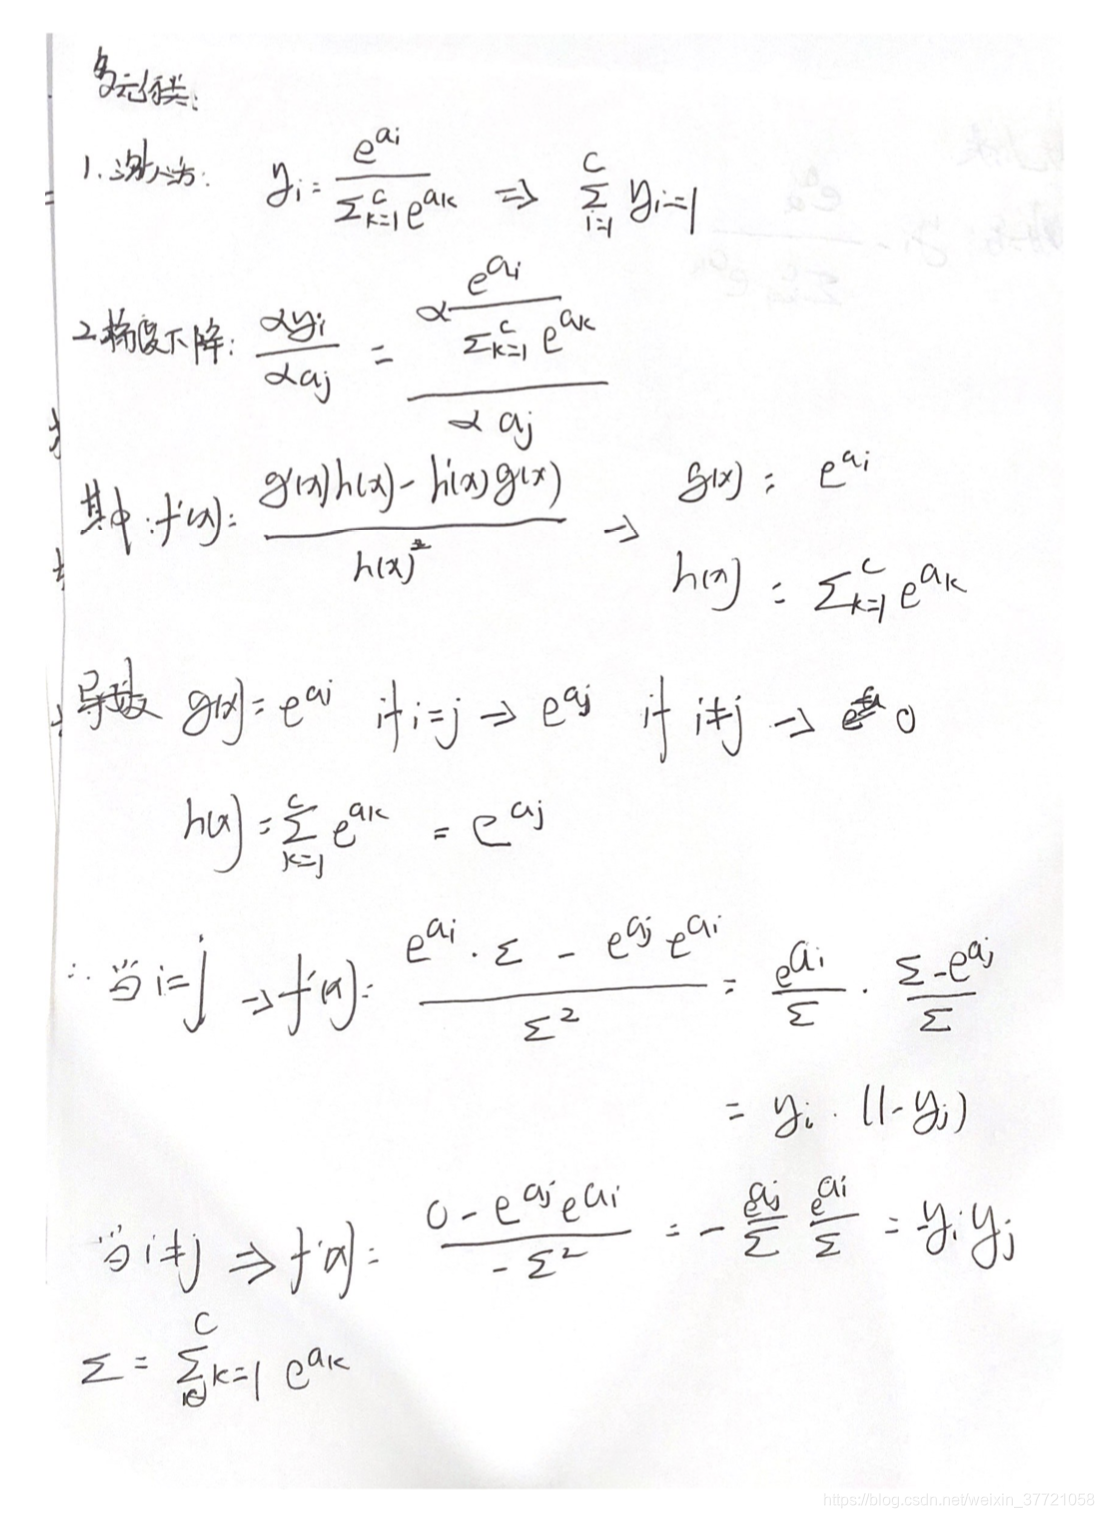 多元分类:
1. 方法: yᵢ = e^{aᵢ} / Σ_{k=1}^{C} e^{aₖ} => Σ_{i=1}^{C} yᵢ = 1
2. 梯度下降: αyᵢ / αaⱼ = α (e^{aᵢ} / Σ_{k=1}^{C} e^{aₖ}) / α aⱼ
其中: f'(x) = (g'(x)h(x) - h'(x)g(x)) / h(x)² => g(x) = e^{aᵢ}
h(x) = Σ_{k=1}^{C} e^{aₖ}
导数 g(x) = e^{aⱼ} if i=j → e^{aⱼ} if i≠j → 0
h(x) = Σ_{k=1}^{C} e^{aₖ} = e^{aⱼ}
∴ 当 i=j → f'(x) = (e^{aᵢ} · Σ - e^{aⱼ} e^{aᵢ}) / Σ² = e^{aᵢ}/Σ · (Σ - e^{aⱼ})/Σ
= yᵢ · (1-yⱼ)
当 i≠j => f'(x) = (0 - e^{aⱼ} e^{aᵢ}) / -Σ² = - e^{aⱼ}/Σ e^{aᵢ}/Σ = -yᵢyⱼ
Σ = Σ_{k=1}^{C} e^{aₖ}
https://blog.csdn.net/weixin_37721058